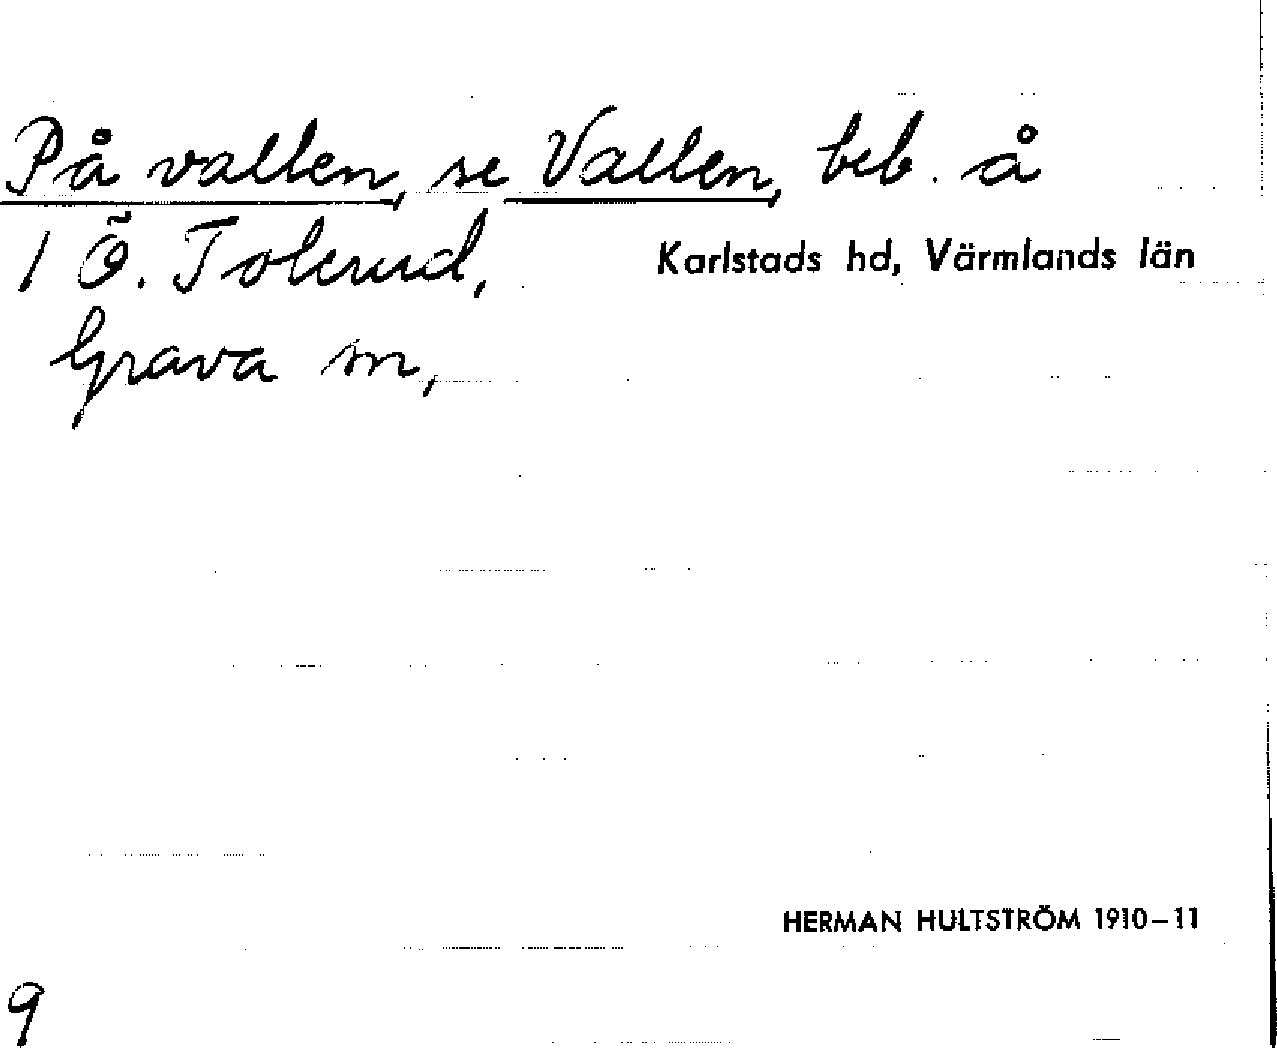 På vallen, se Vallen, beb. å
1 Ö. Tolerud,
Karlstads hd, Värmlands län
Grava sn,
HERMAN HULTSTRÖM 1910–11
9